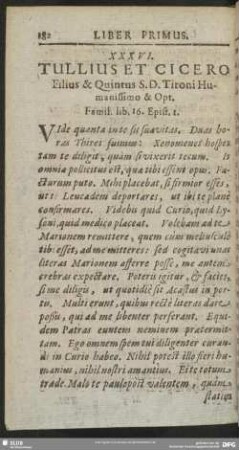 182 LIBER PRIMUS.
XXXVI.
TULLIUS ET CICERO
Filius & Quintus S.D. Tironi Hu-
manissimo & Opt.
Famil. lib. 16. Epist. 5.
VIde quanta in te sit suavitas. Duas ho-
ras Thirei fuimus: Xenomenes hospes
tam te diligit, quàm si vixerit tecum. Is
omnia pollicitus est, quæ tibi essent opus: Fa-
cturum puto. Mihi placebat, si firmior esses,
ut te Leucadem deportaret, ut ibi te planè
confirmares. Videbis quid Curio, quid Ly-
soni, quid medico placeat. Volebam ad te
Marionem remittere, quem cùm meliusculè
tibi esset, ad me mitteres: sed cogitavi unas
literas Marionem afferre posse, me autem
crebras expectare. Poteris igitur, & facies,
si me diligis, ut quotidie sit Acastus in por-
tu. Multi erunt, quibus rectè literas dare
possis, qui ad me libenter perferant. Equi-
dem Patras euntem neminem prætermit-
tam. Ego omnem spem tui diligenter curan-
di in Curio habeo. Nihil potest illo fieri hu-
manius, nihil nostri amantius. Ei te totum
trade. Malo te paulopòst valentem, quàm
statim
SLUB
DFG